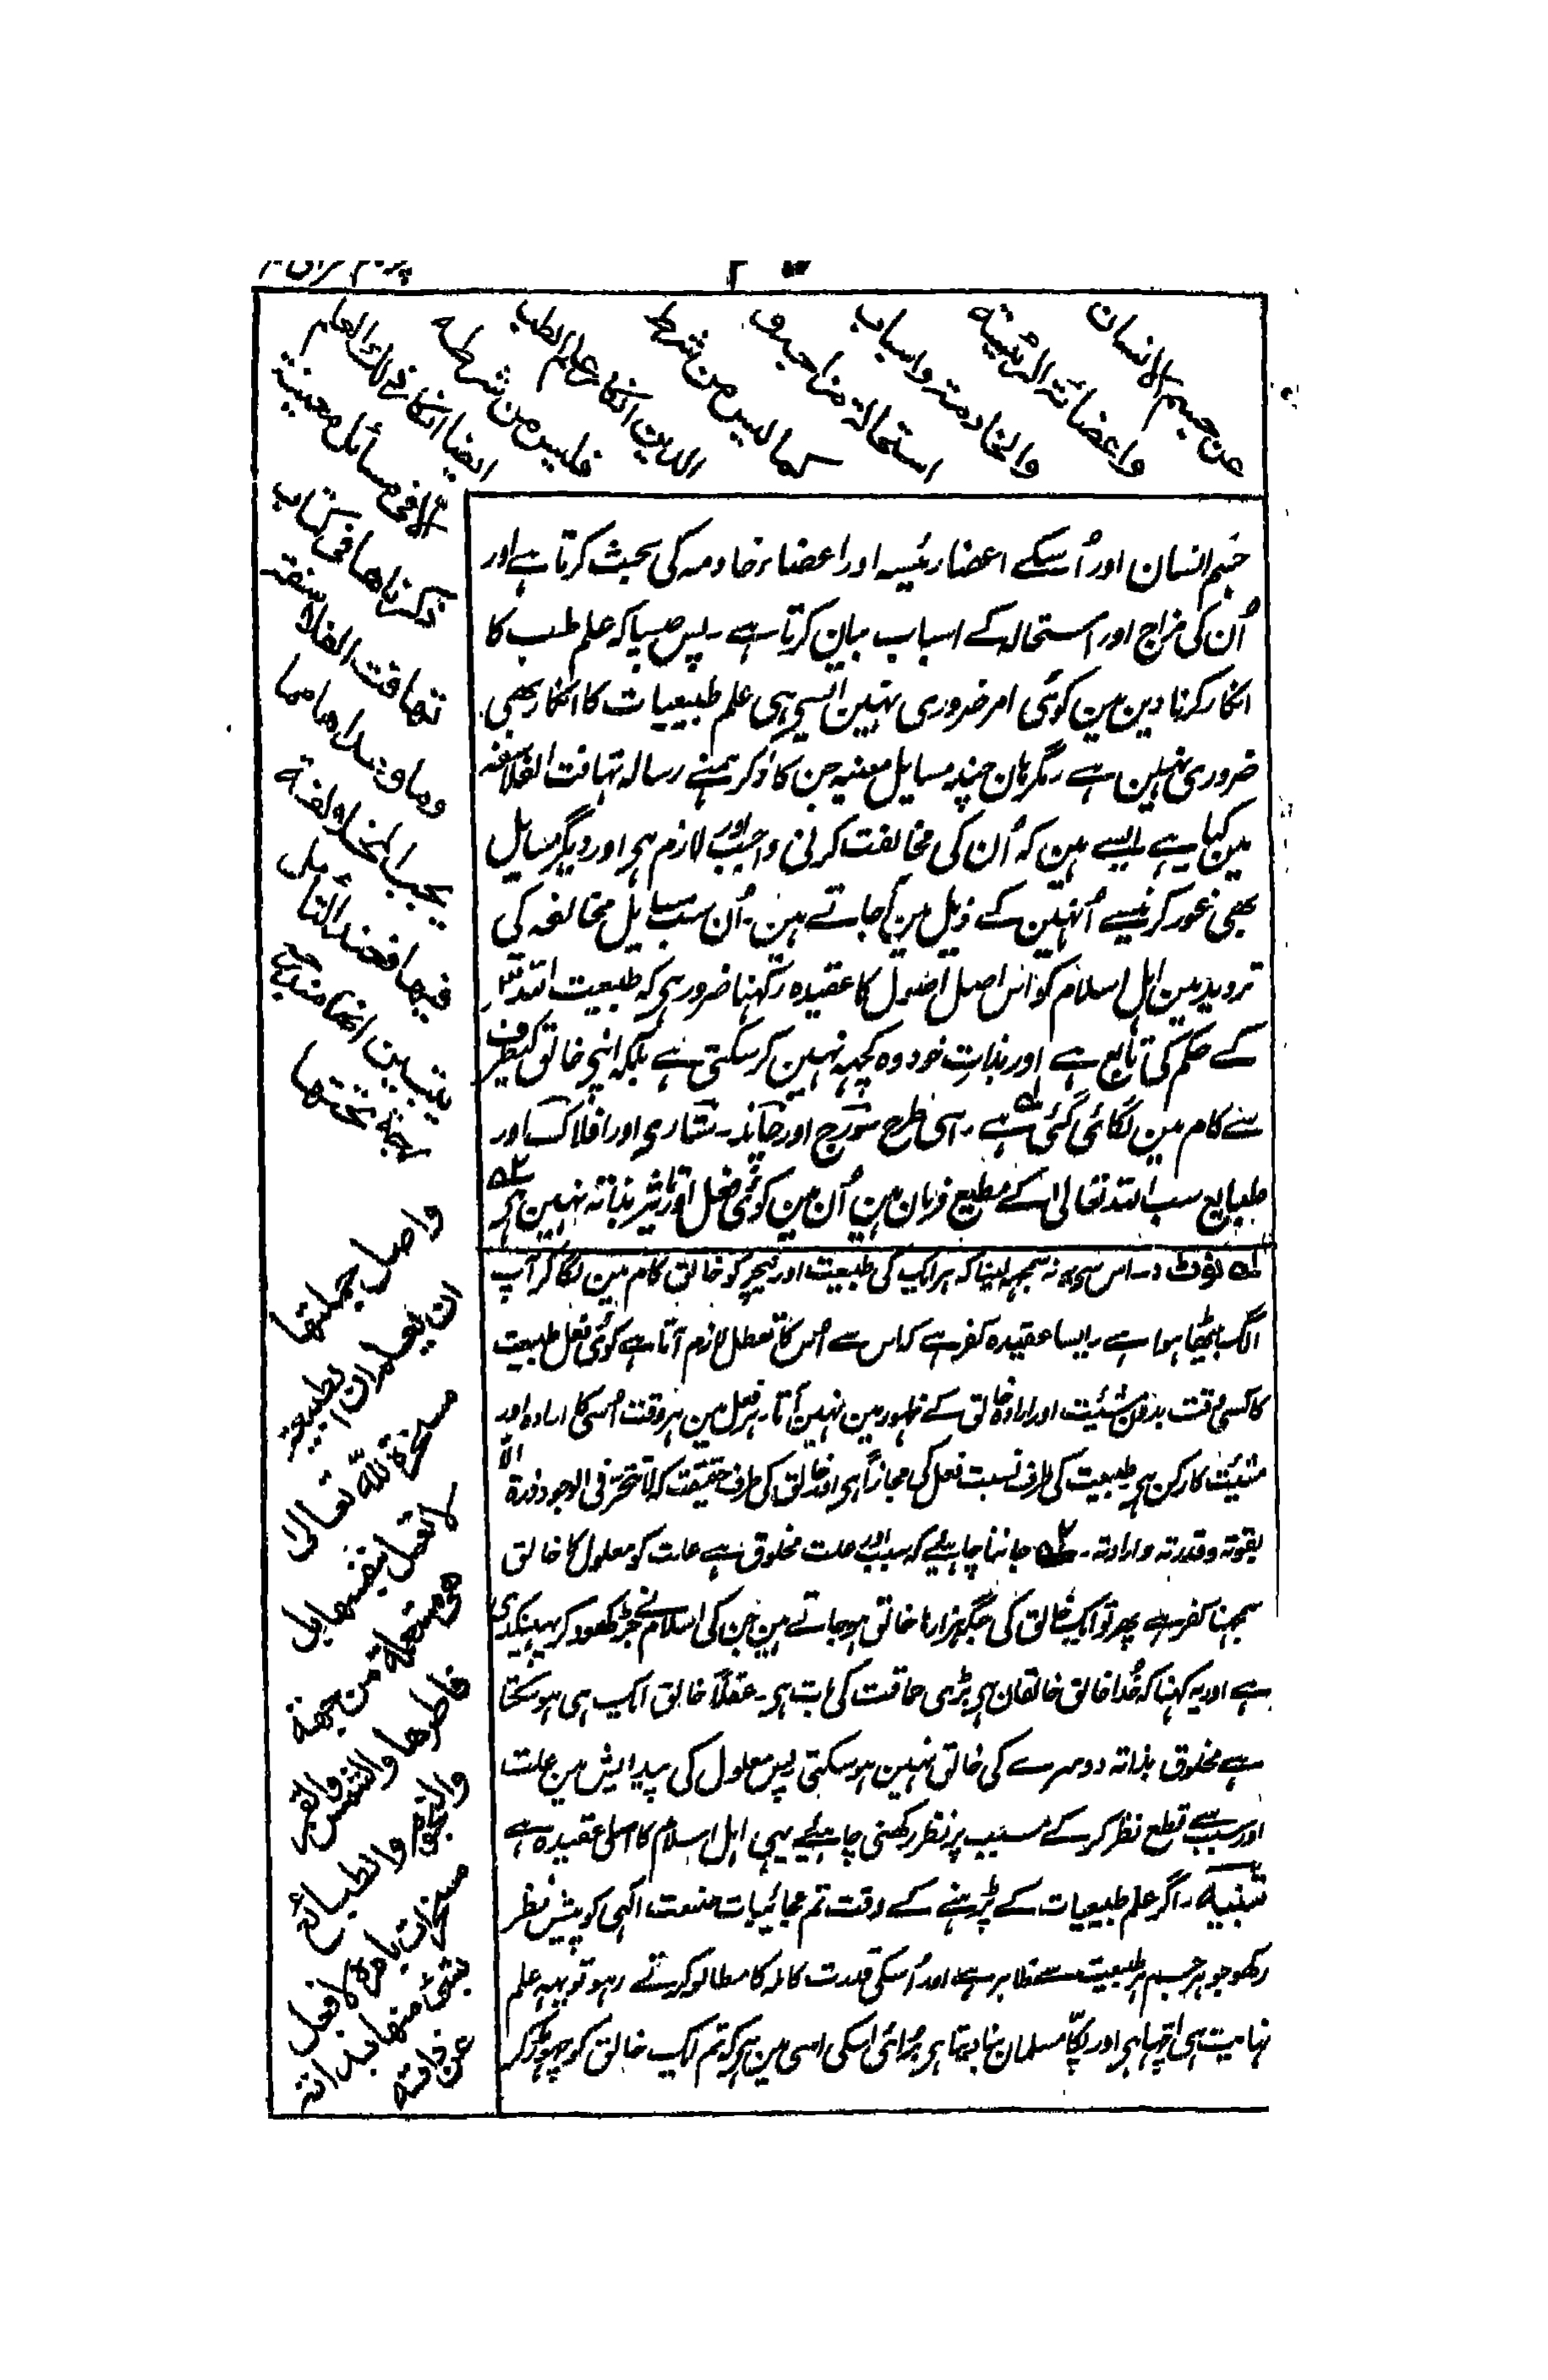 عن جسم الانسان
واعضائه الرئيسية
والخادمة واسباب
استحالة مزاجه و
كما ليس من شرط
الدين انكار علم الطب
فليس من شرطه
ايضا انكار ذلك العلم
الا فى مسائل معينة
ذكرناها فى كتاب
تهافت الفلاسفة
وما وراءها مما
يجب المخالفة
فيها فعند التأمل
يتبين انها مندرجة
تحتها
واصل جملتها
ان يعلم ان الطبيعة
مسخرة لله تعالى
لا تعمل بنفسها بل
هى مستعملة من جهة
فاطرها والشمس والقمر
والنجوم والطبائع
مسخرات بامره لا فعل
لشئ منها بذاته
عن ذاته
جسم انسان اور اُسکے اعضاء رئیسہ اور اعضاء خادمہ کی بحث کرتا ہے اور
اُن کی مزاج اور استحالہ کے اسباب بیان کرتا ہے ۔ پس جیسا کہ علم طب کا
انکار کرنا دین مین کوئی امر ضروری نہین ایسی ہی علم طبیعیات کا انکار بھی
ضروری نہین ہے ۔ مگر ہان چند مسایل معینہ جن کا ذکر ہمنے رسالہ تہافت الفلاسفہ
مین کیا ہے ایسے ہین کہ اُن کی مخالفت کرنی واجب اور لازم ہی اور دیگر مسایل
بھی غور کرنیسے اُنہین کے ذیل مین آ جاتے ہین ۔ اُن سب مسایل مخالفہ کی
تردید مین اہل اسلام کو اس اصل اصول کا عقیدہ رکہنا ضرور ہی کہ طبیعت اللہ تعالیٰ
کے حکم کی تابع ہے اور بذاتِ خود وہ کچہہ نہین کر سکتی ہے بلکہ اپنی خالق کیطرف
سے کام مین لگائی گئی ہے ۱ہ ۔ اسی طرح سورج اور چاند ۔ ستاری اور افلاک اور
طبایع سب اللہ تعالیٰ کے مطیع فرمان ہین اُن مین کوئی فعل اور تاثیر بذاتہ نہین ہی ۲ہ
۱ہ نوٹ :۔ اس سی یہ نہ سمجہہ لینا کہ ہر ایک کی طبیعت اور نیچر کو خالق کام مین لگا کر آپ
الگ بیٹھا ہوا ہے ۔ ایسا عقیدہ کفر ہے کہ اس سے اُس کا تعطل لازم آتا ہے کوئی فعل طبیعت
کا کسی وقت بدون مشیّت اور ارادہ خالق کے ظہور مین نہین آتا ۔ ہر فعل مین ہر وقت اُسی کا ارادہ اور
مشیّت کارکن ہی طبیعت کی طرف نسبت فعل کی مجازاً ہی اور خالق کی طرف حقیقت کہ لا تتحرک فی الوجود ذرۃ الا
بقوتہ و قدرتہ و ارادتہ ۔ ۲ہ جاننا چاہیئے کہ سبب اور علت مخلوق ہے علت کو معلول کا خالق
سمجہنا کفر ہے پھر تو ایک خالق کی جگہ ہزارہا خالق ہو جاتے ہین جن کی اسلام نے جڑ کھود کر پہینکدی
ہے اور یہ کہنا کہ خُدا خالق خالقان ہی بڑی حماقت کی بات ہی ۔ عقلاً خالق ایک ہی ہو سکتا
ہے مخلوق بذاتہ دوسرے کی خالق نہین ہو سکتی پس معلول کی پیدایش مین علت
اور سبب سے قطع نظر کر کے مسبب پر نظر رکھنی چاہیئے یہی اہل اسلام کا اصلی عقیدہ ہے
تنبیہ ۔ اگر علم طبیعیات کے پڑہنے کے وقت تم عجائیبات صنعت الٰہی کو پیش نظر
رکھو جو ہر جسم ہر طبیعت سے ظاہر ہے اور اُسکی قدرت کاملہ کا مطالعہ کرتے رہو تو یہہ علم
نہایت ہی اچہا ہی اور پکّا مسلمان بنا دیتا ہی بُرائی اسکی اسی مین ہی کہ تم ایک خالق کو چہوڑ کر